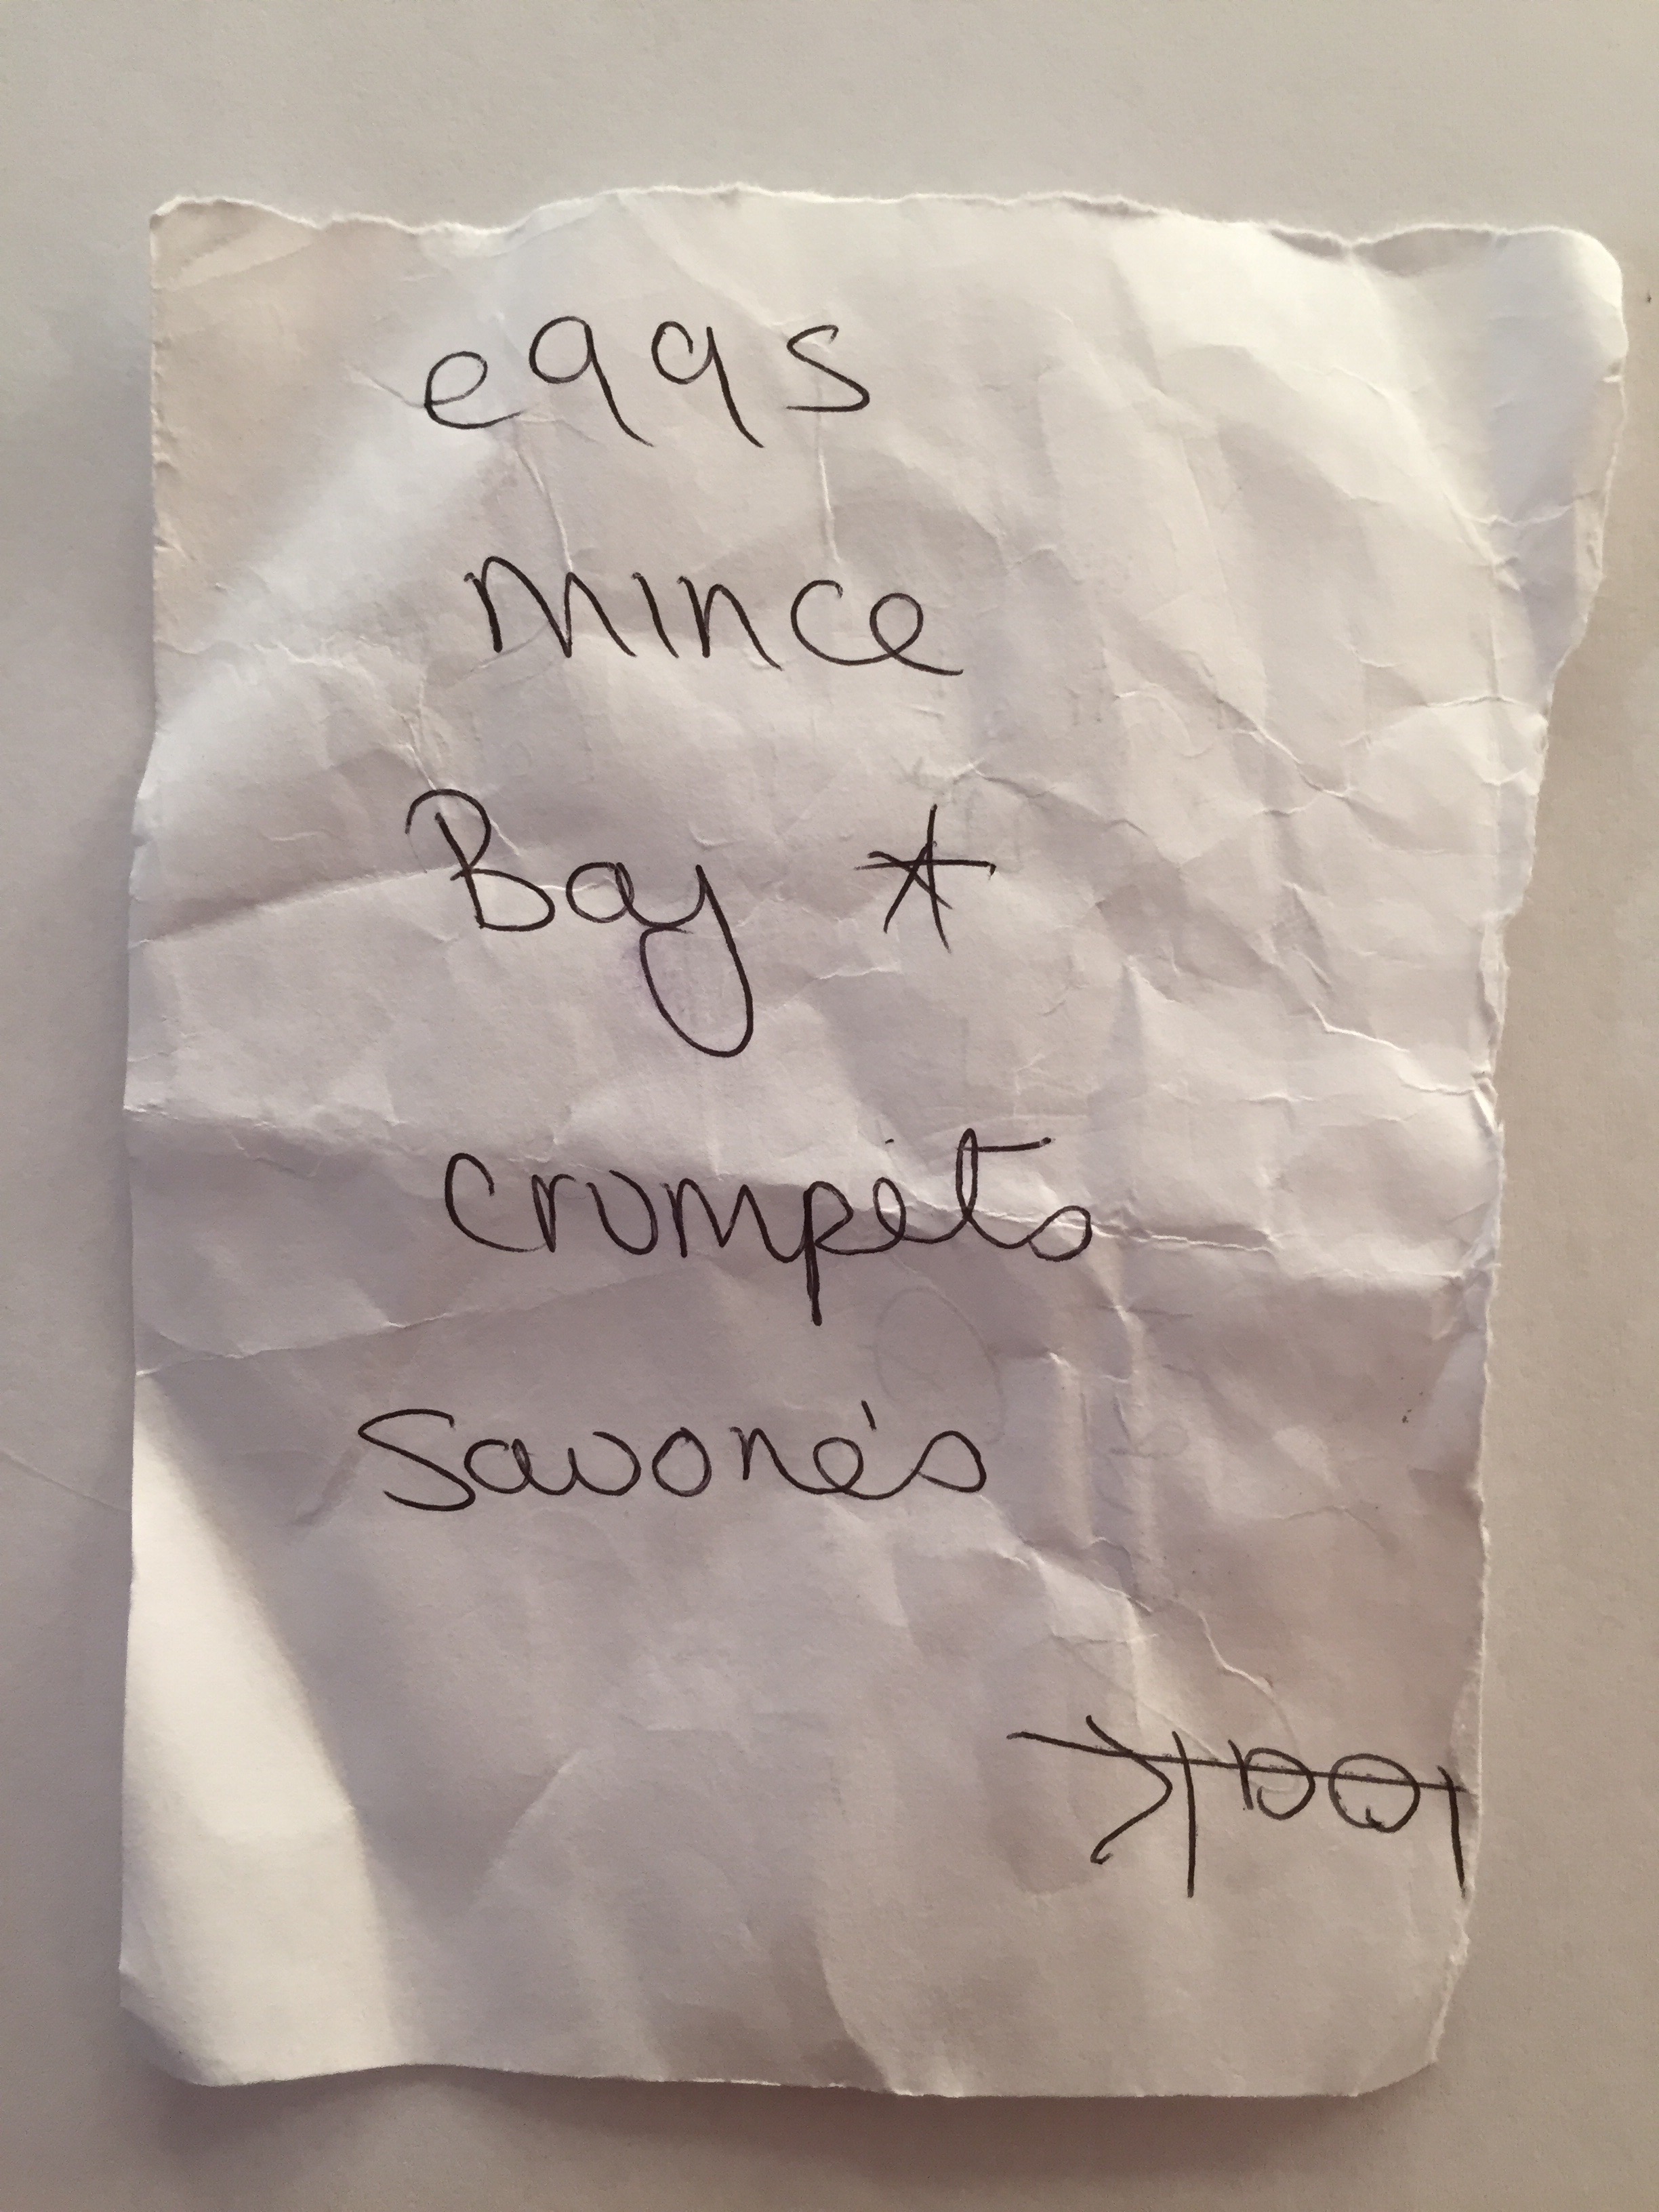 eggs
mince
Bay *
crumpets
Savorie's